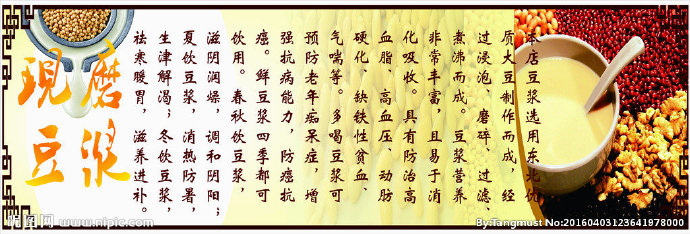 現磨
豆浆
本店豆浆选用东北优
质大豆制作而成，经
过浸泡、磨碎、过滤、
煮沸而成。豆浆营养
非常丰富，且易于消
化吸收。具有防治高
血脂、高血压、动肪
硬化、缺铁性贫血、
气喘等。多喝豆浆可
预防老年痴呆症，增
强抗病能力，防癌抗
癌。鲜豆浆四季都可
饮用。春秋饮豆浆，
滋阴润燥，调和阴阳；
夏饮豆浆，消热防暑，
生津解渴；冬饮豆浆，
祛寒暖胃，滋养进补。
昵图网 www.nipic.com
By:Tangmust No:20160403123641978000